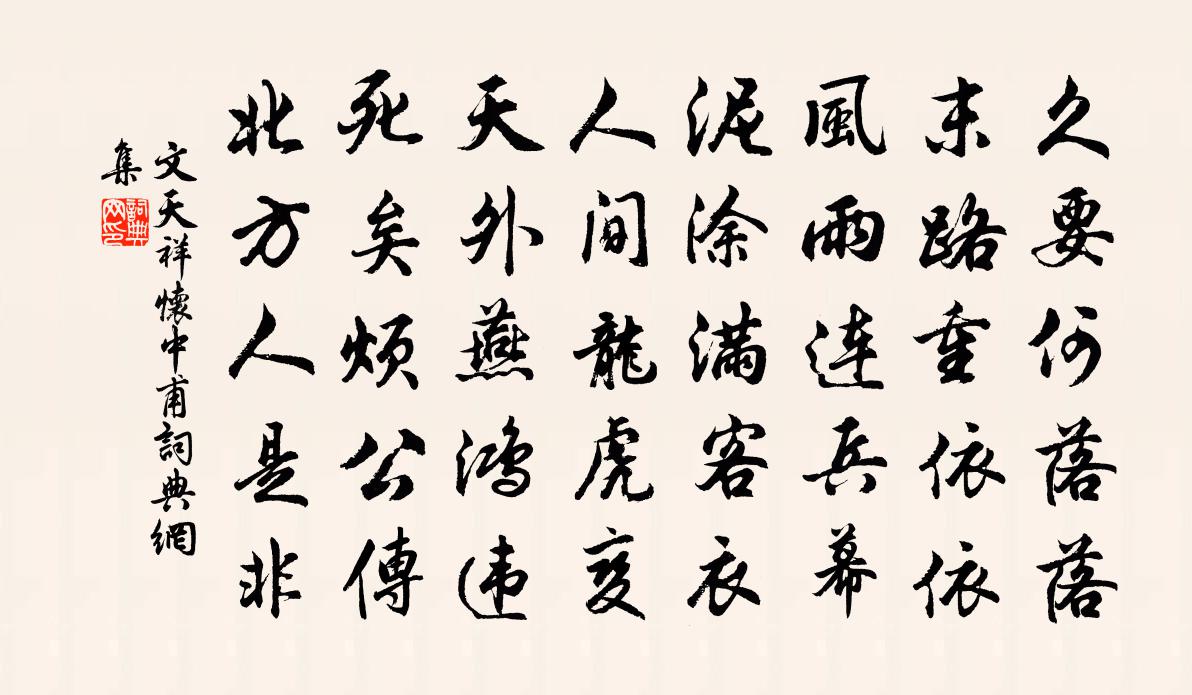 久要何落落
末路重依依
風雨连兵幕
泥涂满客衣
人间龍虎变
天外燕鸿违
死矣烦公傳
北方人是非
文天祥懷中甫詞典網
集
詞典
网